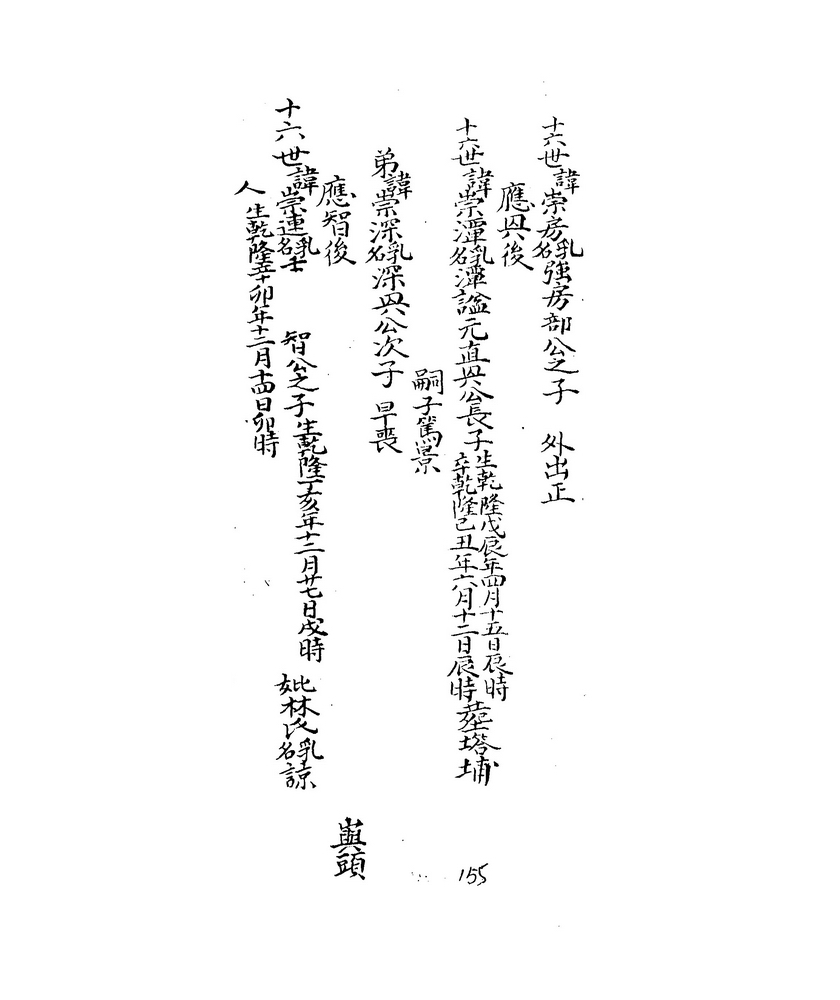 十六世諱崇房乳名強房部公之子　外出正
應與後
十六世諱崇潭乳名潭謚元直與公長子生乾隆戊辰年四月十五日辰時
卒乾隆己丑年六月十二日辰時葬塔埔
嗣子篤景
弟諱崇深乳名深與公次子　早喪
應智後
十六世諱崇連乳名士　智公之子生乾隆丁亥年十二月廿七日戌時　妣林氏乳名諒
人生乾隆辛卯年十二月十四日卯時
輿頭
155